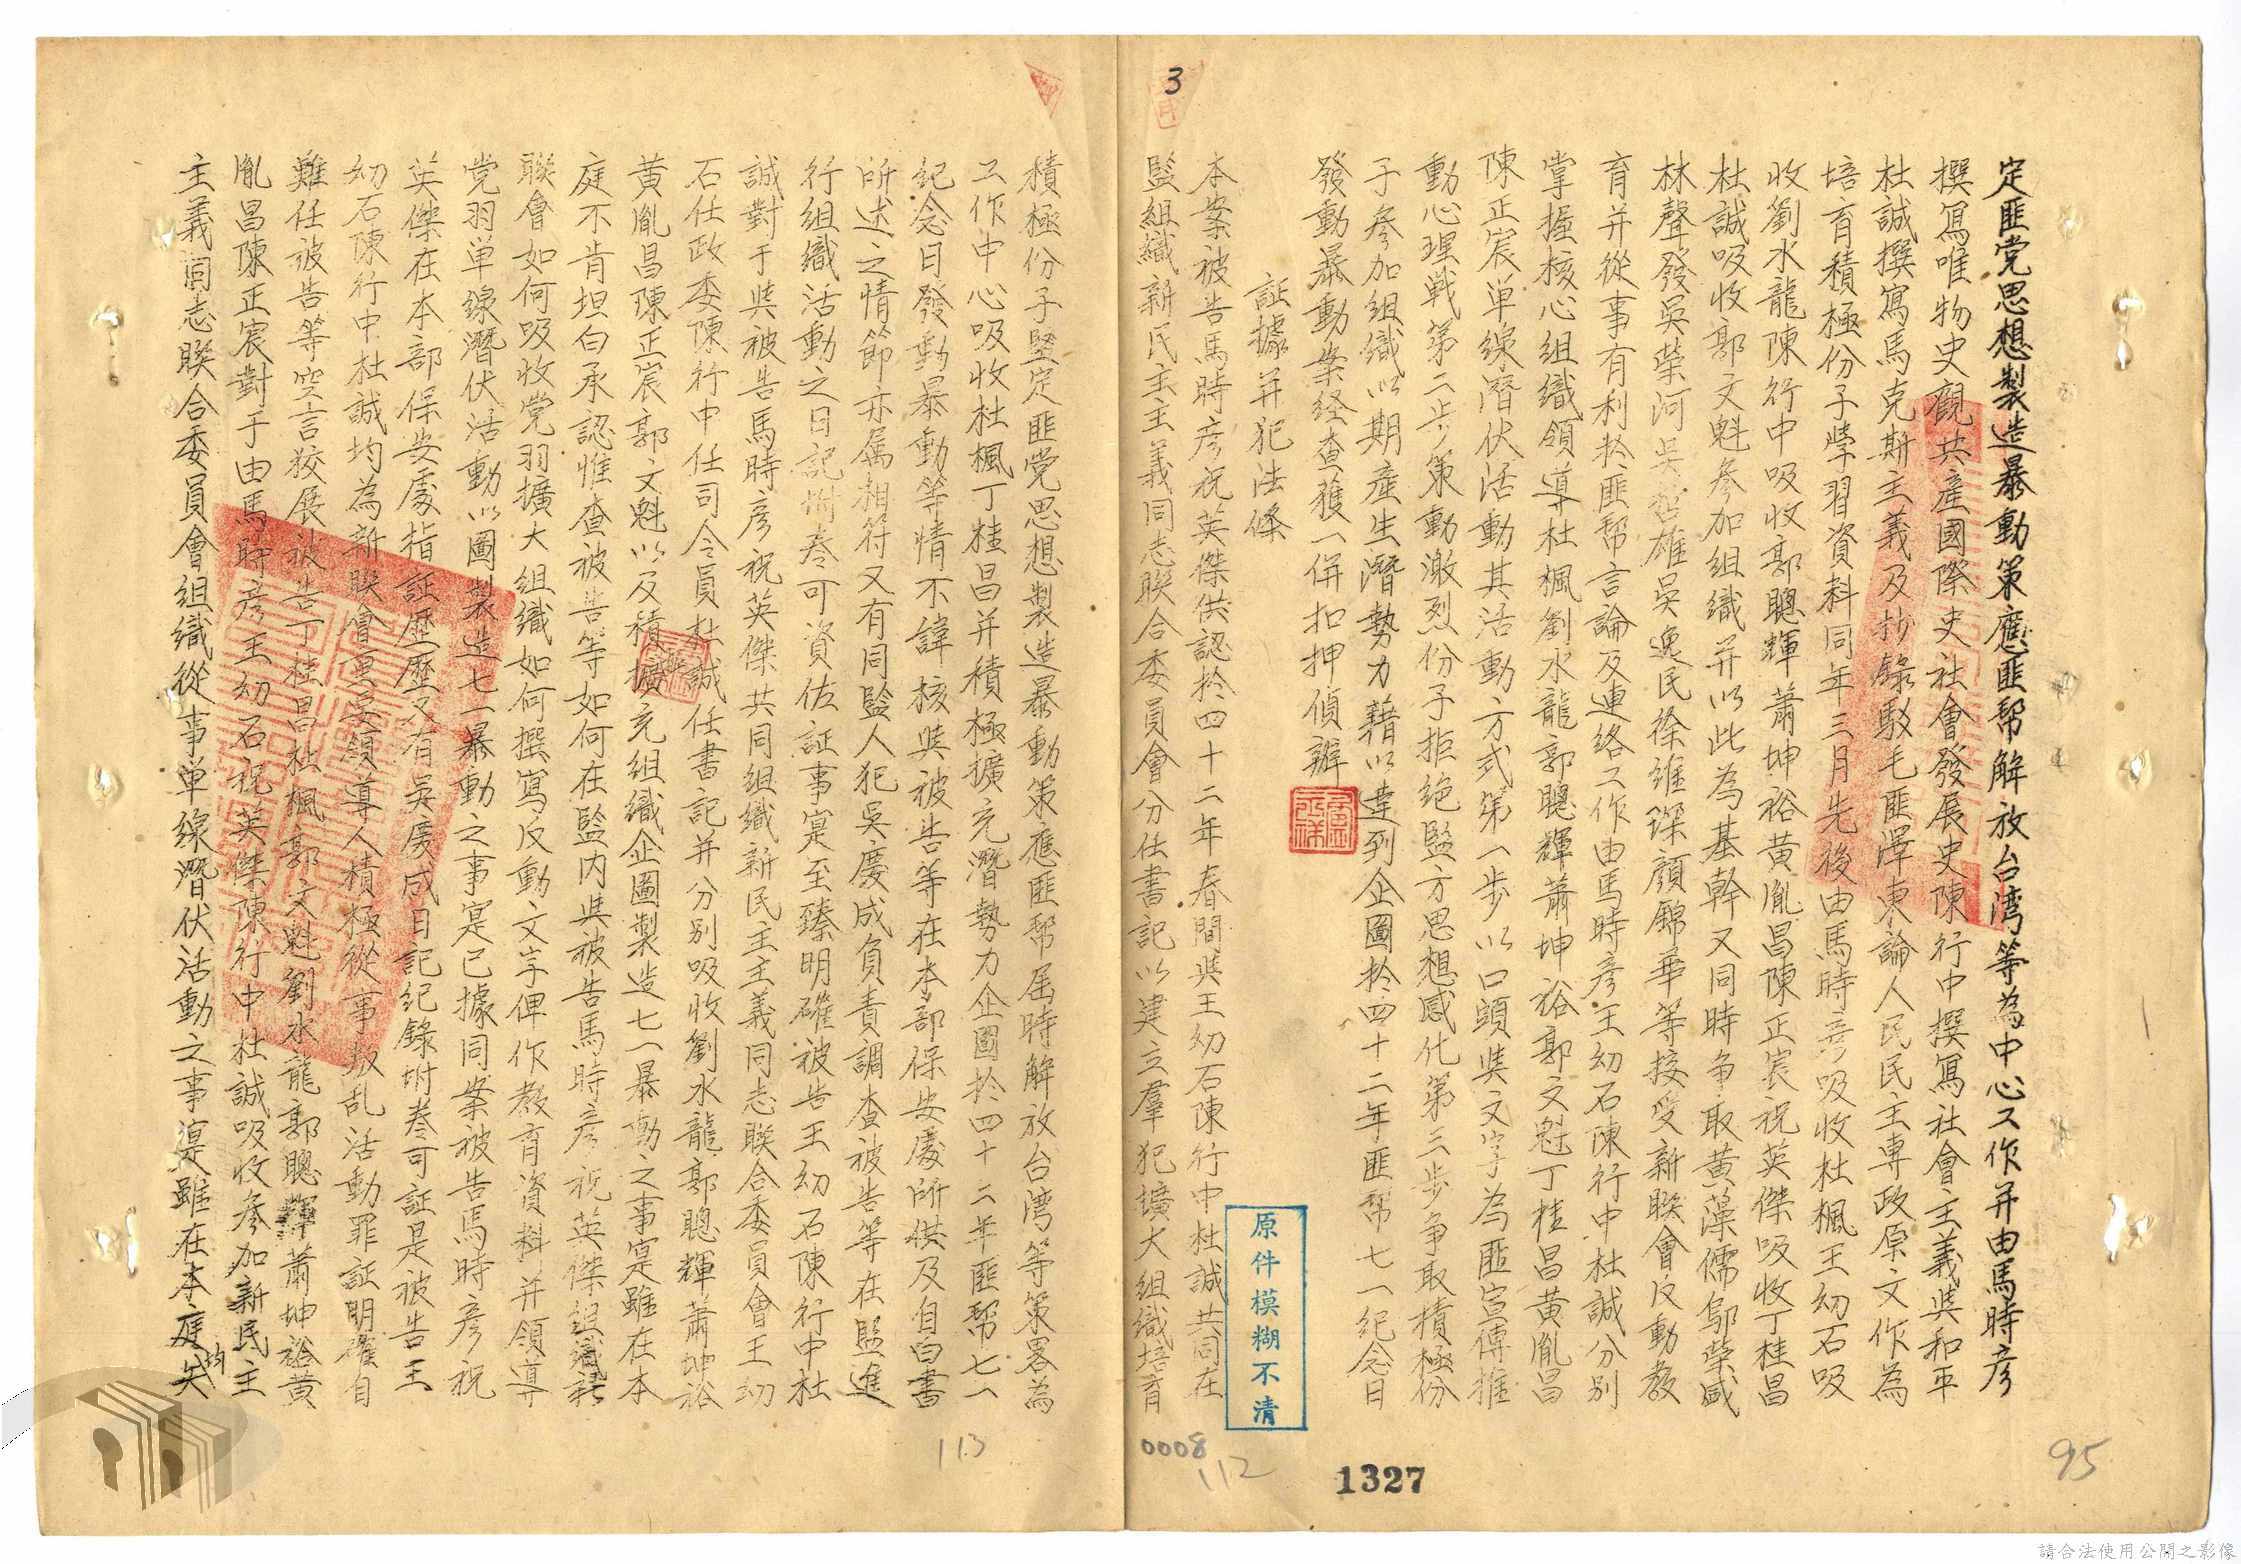 定匪党思想製造暴動策應匪帮解放台湾等為中心工作并由馬時彦
撰寫唯物史觀共產國際史社會發展史陳行中撰寫社會主義與和平
杜誠撰寫馬克斯主義及抄錄駁毛匪澤東論人民民主專政原文作為
培育積極份子學習資料同年三月先後由馬時彦吸收杜楓王幼石吸
收劉水龍陳行中吸收郭聰輝蕭坤裕黃胤昌陳正宸祝英傑吸收丁桂昌
杜誠吸收郭文魁參加組織并以此為基幹又同時争取黃藻儒鄔榮咸
林聲發吳榮河吳哲雄吳逸民徐維琛顏錦華等接受新聯會反動教
育并從事有利於匪帮言論及連絡工作由馬時彦王幼石陳行中杜誠分別
掌握核心組織領導杜楓劉水龍郭聰輝蕭坤裕郭文魁丁桂昌黃胤昌
陳正宸单線潛伏活動其活動方式第一步以口頭與文字為匪宣傳推
動心理戰第二步策動激烈份子拒绝監方思想感化第三步争取積極份
子參加組織以期產生潛勢力藉以達到企圖於四十二年匪帮七一紀念日
發動暴動案经查獲一併扣押偵辦
証據并犯法條
本案被告馬時彦祝英傑供認於四十二年春間與王幼石陳行中杜誠共同在
監組織新民主主義同志聯合委員會分任書記以建立羣犯擴大組織培育
3
原件模糊不清
0008
112
1327
95
積極份子堅定匪党思想製造暴動策應匪帮屆時解放台湾等策畧為
工作中心吸收杜楓丁桂昌并積極擴充潛勢力企圖於四十二年匪帮七一
紀念日發動暴動等情不諱核與被告等在本部保安處所供及自白書
所述之情節亦属相符又有同監人犯吳慶成負責調查被告等在監進
行組織活動之日記附卷可資佐証事寔至臻明確被告王幼石陳行中杜
誠對于與被告馬時彦祝英傑共同組織新民主主義同志聯合委員會王幼
石任政委陳行中任司令員杜誠任書記并分別吸收劉水龍郭聰輝蕭坤裕
黃胤昌陳正宸郭文魁以及積擴充組織企圖製造七一暴動之事寔雖在本
庭不肯坦白承認惟查被告等如何在監内與被告馬時彦祝英傑組織新
聯會如何吸收党羽擴大組織如何撰寫反動文字俾作教育資料并領導
党羽单線潛伏活動以圖製造七一暴動之事寔已據同案被告馬時彦祝
英傑在本部保安處指証歷歷又有吳慶成日記紀錄附卷可証是被告王
幼石陳行中杜誠均為新聯會重要領導人積極從事叛乱活動罪証明確自
難任被告等空言狡展被告丁桂昌杜楓郭文魁劉水龍郭聰輝蕭坤裕黃
胤昌陳正宸對于由馬時彦王幼石祝英傑陳行中杜誠吸收參加新民主
主義同志聯合委員會組織從事单線潛伏活動之事寔雖在本庭均矢
113
請合法使用公開之影像